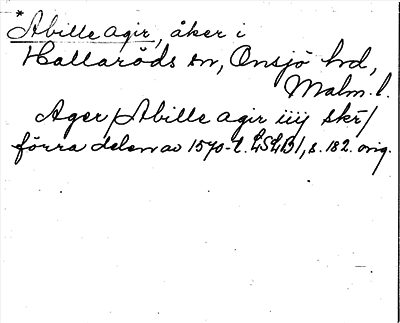 *Abille agir, åker i
Hallaröds sn, Onsjö hd,
Malm. l.
Ager / Abille agir iiij skr /
förra delen av 1570-t. LSLB1, s. 182. orig.